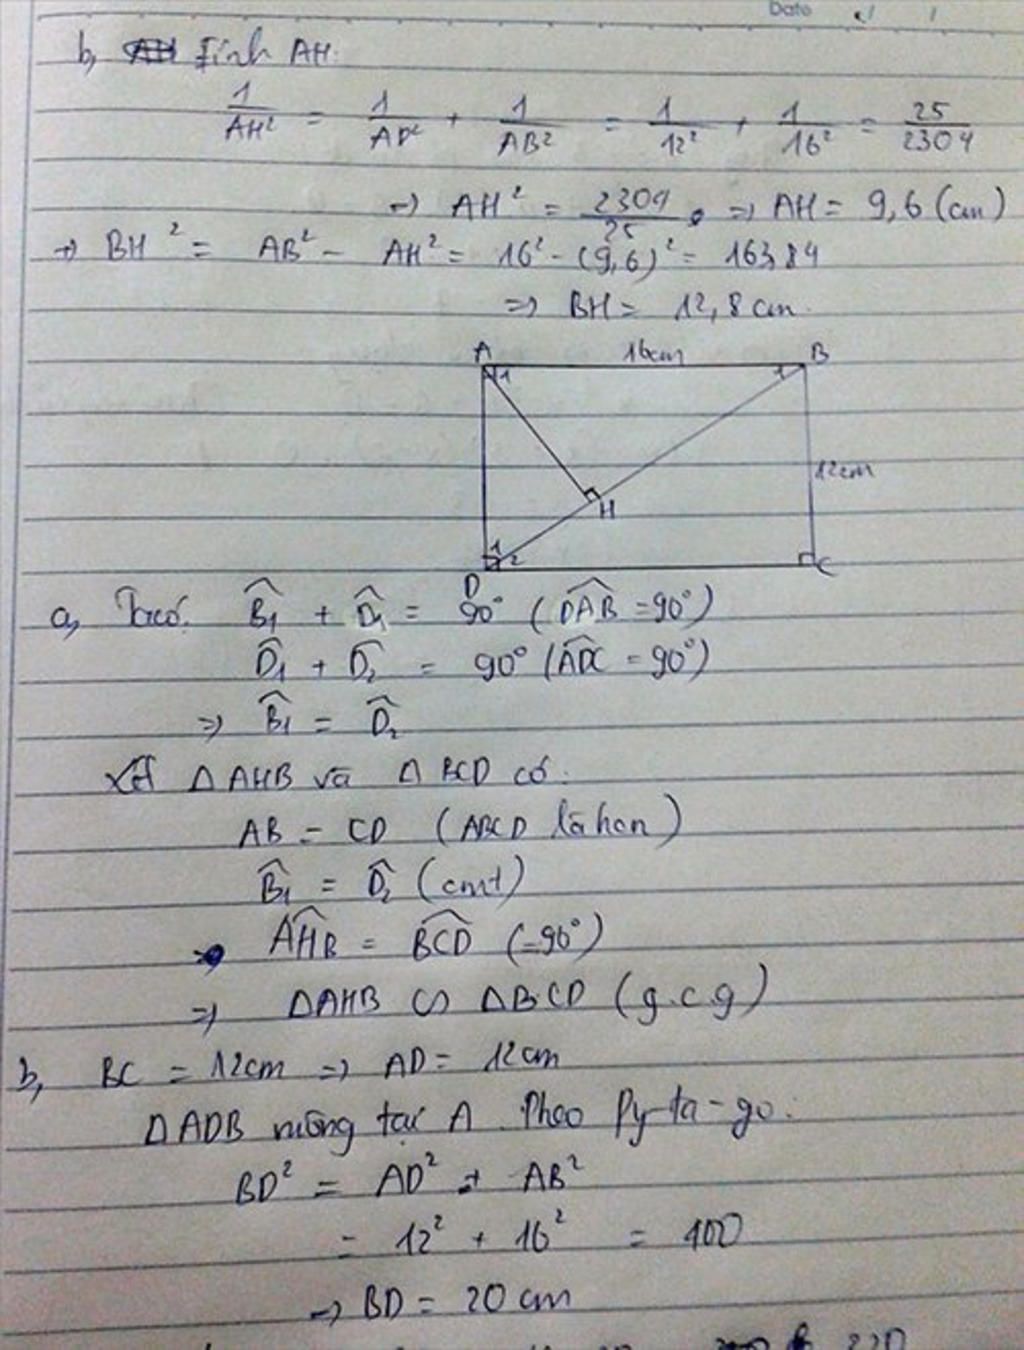 Date / /
b, AH Tính AH.
1/AH² = 1/AD² + 1/AB² = 1/12² + 1/16² = 25/2304
=> AH² = 2304/25 => AH = 9,6 (cm)
=> BH² = AB² - AH² = 16² - (9,6)² = 163,84
=> BH = 12,8 cm.
A 16cm B
1 1
12cm
H
1 2
D C
a, Ta có. B̂₁ + D̂₁ = 90° (DAB̂ = 90°)
D̂₁ + D̂₂ = 90° (ADĈ = 90°)
=> B̂₁ = D̂₂
Xét Δ AHB và Δ BCD có.
AB = CD (ABCD là hcn)
B̂₁ = D̂₂ (cmt)
AHB̂ = BCD̂ (=90°)
=> ΔAHB ∽ ΔBCD (g.c.g)
b, BC = 12cm => AD = 12cm
ΔADB vuông tại A. Theo Py-ta-go.
BD² = AD² + AB²
= 12² + 16² = 400
=> BD = 20 cm